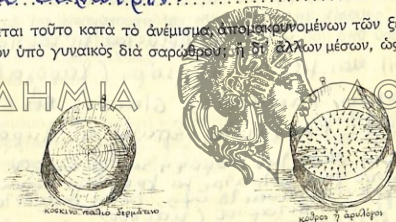 ται τοῦτο κατὰ τὸ ἀνέμισμα, ἀπομακρυνομένων τῶν ξ
ν ὑπὸ γυναικὸς διὰ σαρώθρου; ἢ δι' ἄλλων μέσων, ὡς
ΔΗΜΙΑ ΑΘ
κόσκινο παλιὸ δερμάτινο
κόθρος ἢ ἀριλόγος